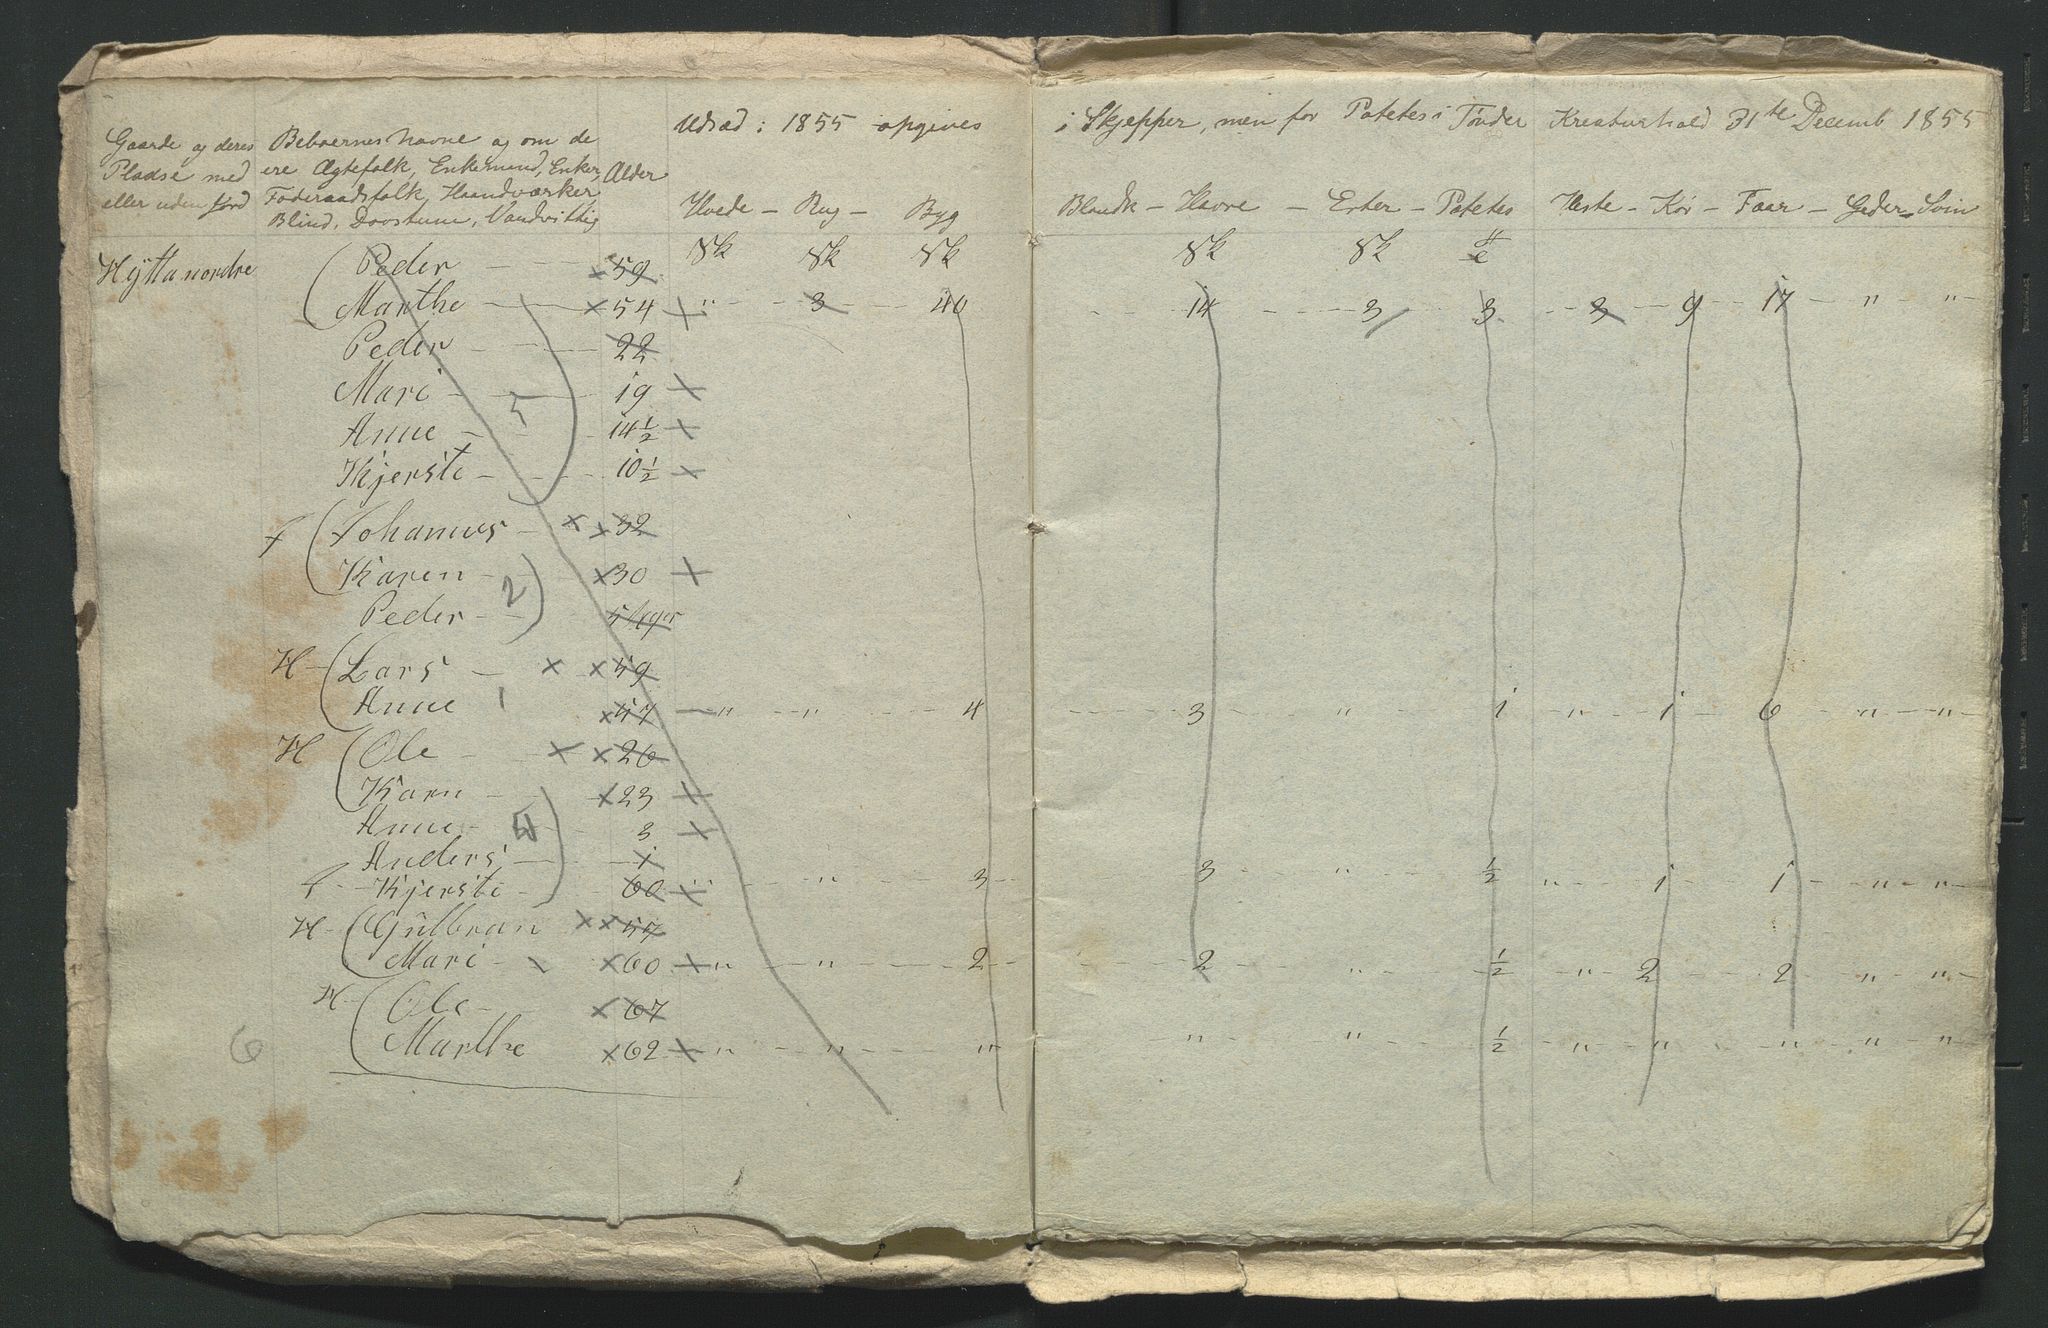 Udsæd i 1855 opgives i Skjepper, men for Potetes i Tønder Kreaturhold 31te Decemb 1855
Gaarde og deres Beboernes Navne og om de
Pladse med ere Ægtefolk, Enkemand, Enker, Alder
eller uden jord Føderaadsfolk, Haandværker,
Blind, Døvstum, Vandvittig
Hvede - Rug - Byg Blandk - Havre - Erter - Potetes Heste - Kør - Faar - Geder - Svin
Hÿtta nordre Peder 59 Sk Sk Sk Sk Sk
Marthe 54 " 3 40 14 3 3 3 9 17 " "
Peder 22
Mari 19
Anne 14½
Kjersti 10½
Johannes 32
f
Karen 30
2
Peder
5
H Lars 59
Anne 47 " " 4 3 " 1 " 1 6 " "
1
H Ole 26
Karn 23
Anne 3
Anders 1
f Kjersti 60 " " 3 3 " ½ " 1 1 " "
H Gulbran 57
Mari 60 " " 2 2 " ½ " 2 2 " "
H Ole 67
6 Marthe 62 " " " " " ½ " " " " "